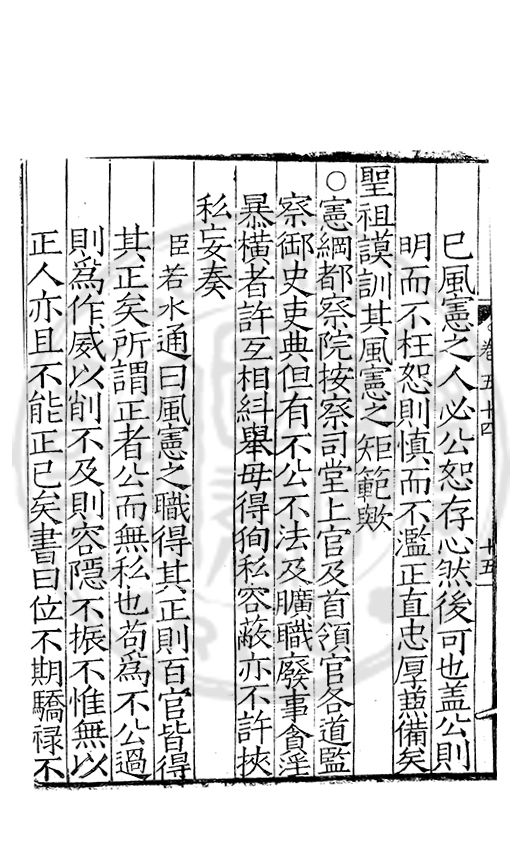 卷五十四
十五
已風憲之人必公恕存心然後可也蓋公則
明而不枉恕則慎而不濫正直忠厚兼備矣
聖祖謨訓其風憲之矩範歟
○憲綱都察院按察司堂上官及首領官各道監
察御史吏典但有不公不法及曠職廢事貪淫
暴橫者許互相糾舉毋得徇私容蔽亦不許挾
私妄奏
臣若水通曰風憲之職得其正則百官皆得
其正矣所謂正者公而無私也苟爲不公過
則爲作威以削不及則容隱不振不惟無以
正人亦且不能正己矣書曰位不期驕祿不